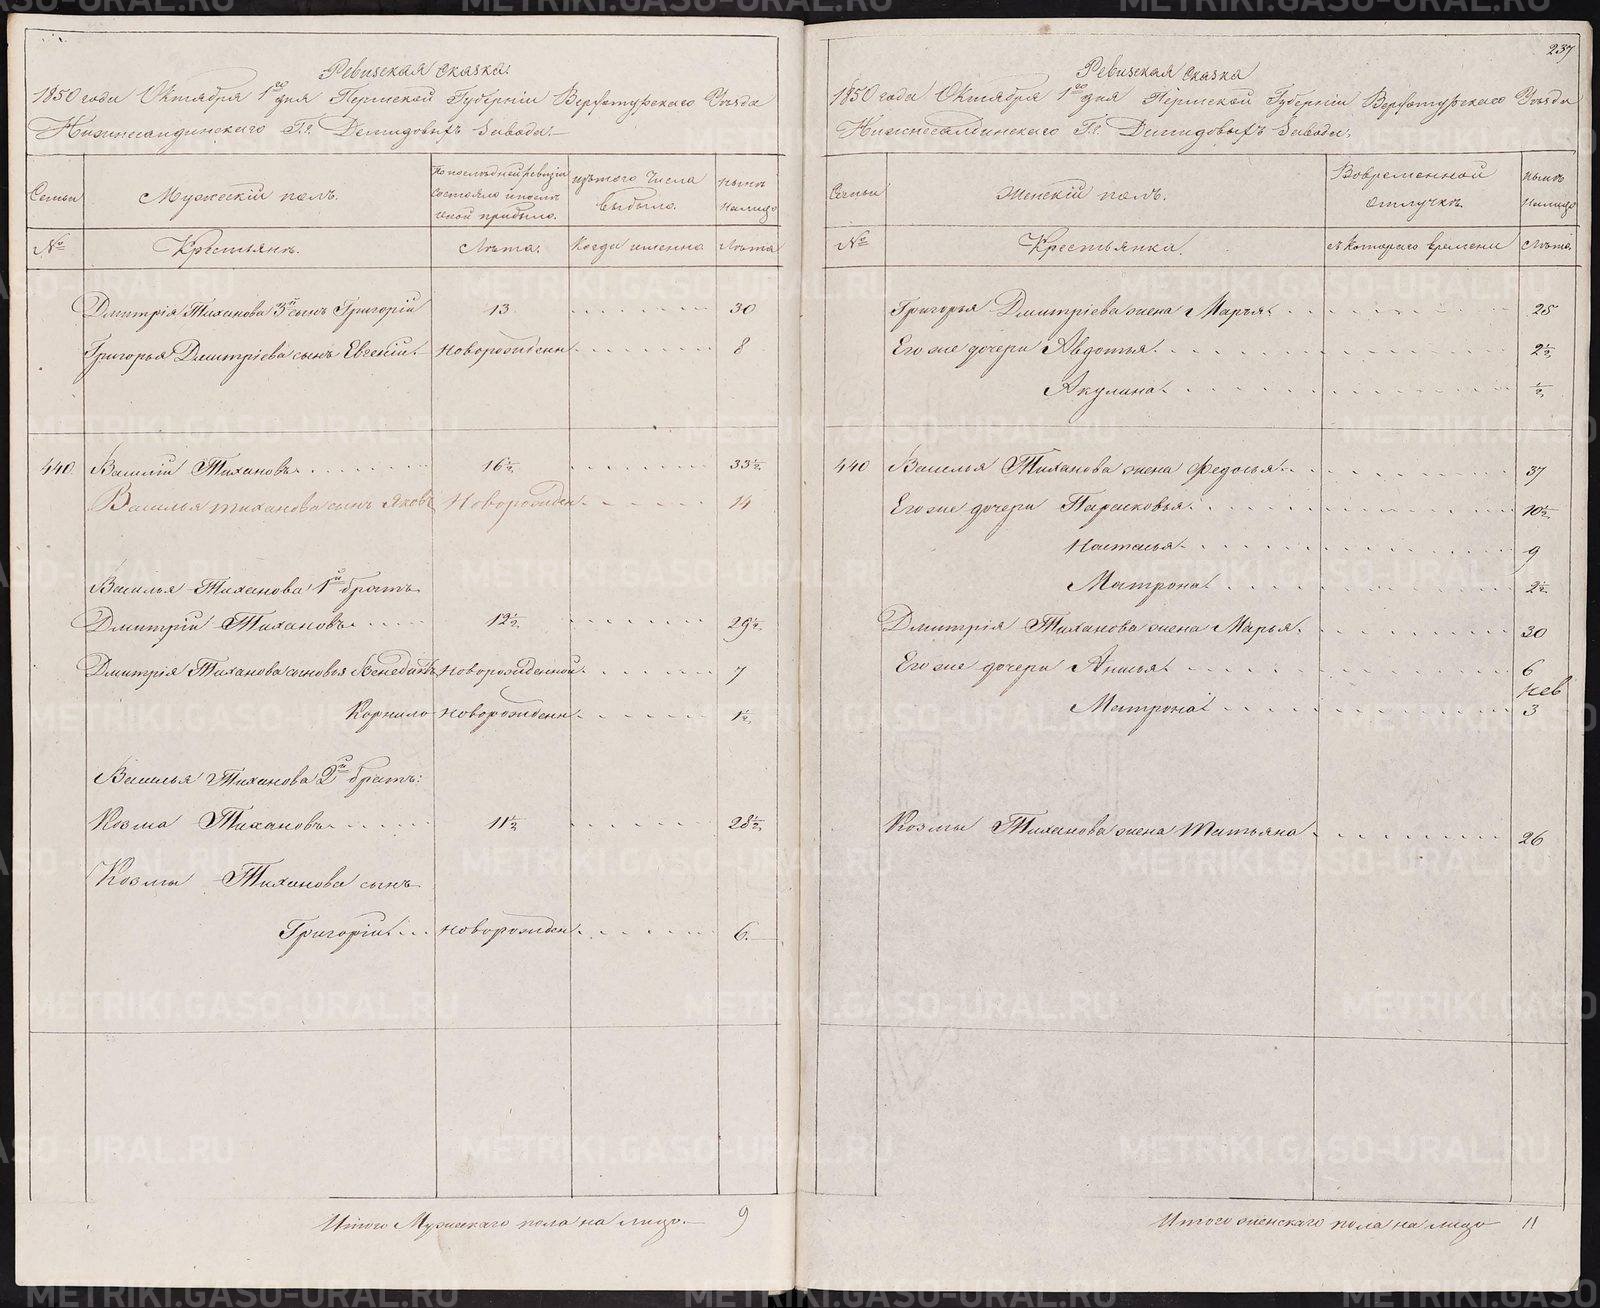 Ревизская сказка.
1850 года Октября 1го дня Пермской Губернiи Верхотурскаго Уѣзда
Нижнесалдинскаго Г.г. Демидовыхъ Завода.
Семьи
Мужескiй полъ.
По последней ревизiи состояло и после оной прибыло.
изъ того числа выбыло.
нынѣ на лицо
№
Крестьянъ.
Лѣта.
Когда именно
Лѣта
Дмитрiя Тиханова 3й сынъ Григорiй 13 30
Григорья Дмитрiева сынъ Евгенiй новорожден 8
440 Василiй Тихановъ 16½ 33½
Василья тиханова сынъ Яковъ Новорожден 14
Василья Тиханова 1й братъ
Дмитрiй Тихановъ 12½ 29½
Дмитрiя Тиханова сыновья Венедиктъ новорожденной 7
Корнило новорожден 1½
Василья Тиханова 2й братъ:
Козма Тихановъ 11½ 28½
Козмы Тиханова сынъ
Григорiй новорожден 6
Итого Мужескаго пола на лицо 9
237
Ревизская сказка
1850 года Октября 1го дня Пермской Губернiи Верхотурскаго Уѣзда
Нижнесалдинскаго Г.г. Демидовыхъ Завода.
Семьи
Женскiй полъ.
Вовременной отлучкѣ.
нынѣ налицо
№
Крестьянка.
съ котораго времени
Лѣта.
Григорья Дмитрiева жена Марья 25
Его же дочери Авдотья 2½
Акулина ½
440 Василья Тиханова жена Федосья 37
Его же дочери Парасковья 10½
Настасья 9
Матрона 2½
Дмитрiя Тиханова жена Марья 30
Его же дочери Анисья 6
нед
Матрона 3
Козмы Тиханова жена Татьяна 26
Итого женскаго пола на лицо 11
METRIKI.GASO-URAL.RU